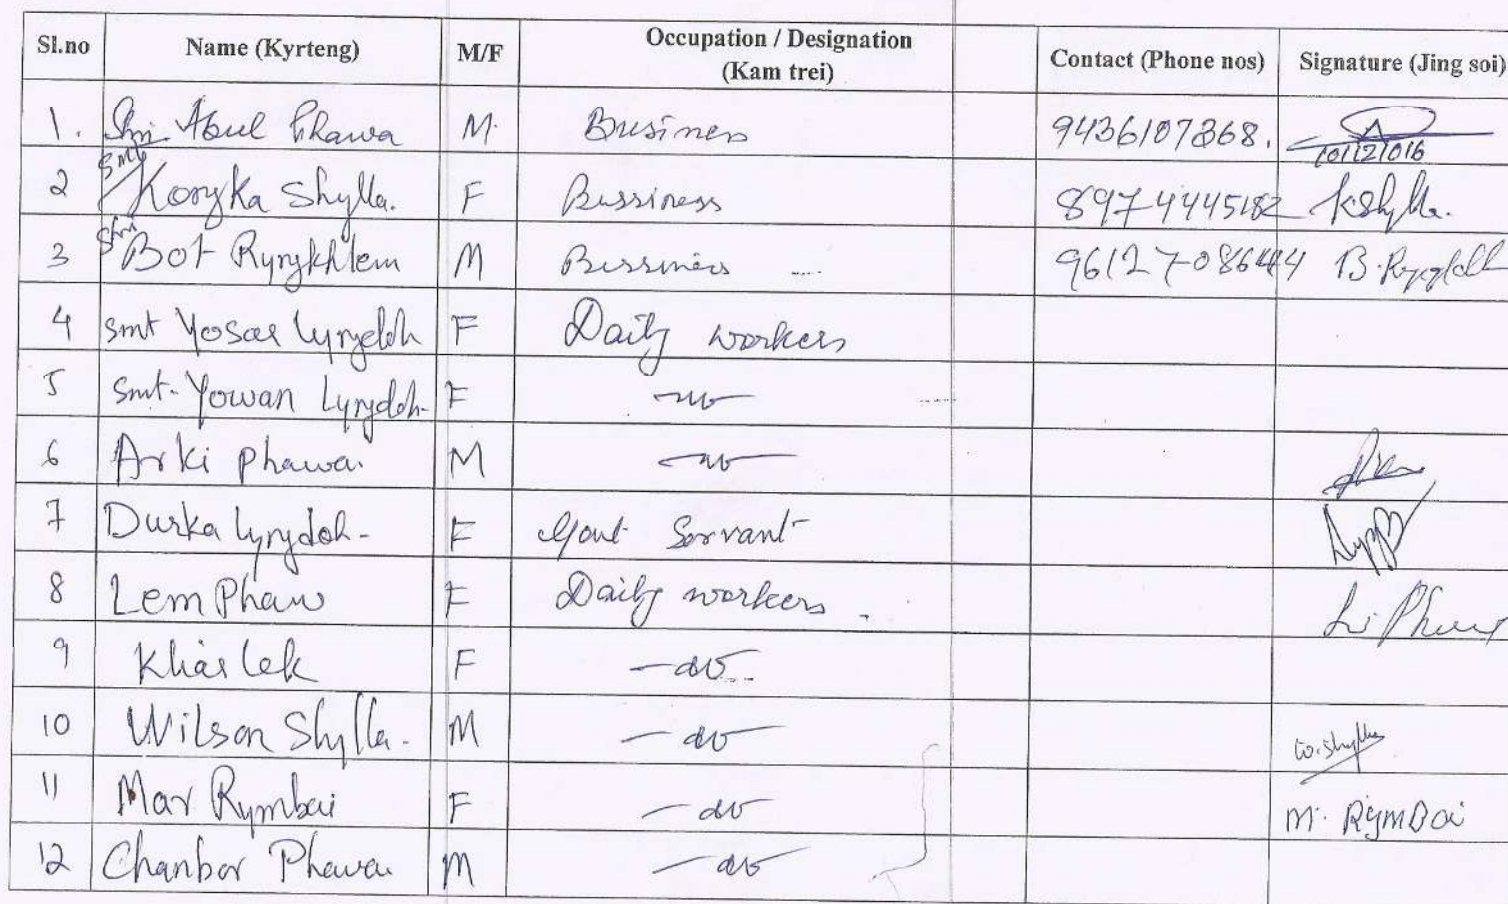 Sl.no Name (Kyrteng) M/F Occupation / Designation (Kam trei) Contact (Phone nos) Signature (Jing soi)
1. Shri Abul Phawa M. Business 9436107868. 10/12/2016
2 Smt Kongka Shylla. F Bussiness 8974445182 KShylla.
3 Shri Bot Ryngkhlem M Bussiness 9612708644
4 Smt Yosar Lyngdoh F Daily workers
5 Smt. Yowan Lyngdoh F do
6 Arki Phawa. M do
7 Durka Lyngdoh - F Govt Servant
8 Lem Phaw F Daily workers
9 Khiar Lek F - do
10 Wilson Shylla. M - do W. Shylla
11 Mar Rymbai F - do M. Rymbai
12 Chanbor Phawa M - do